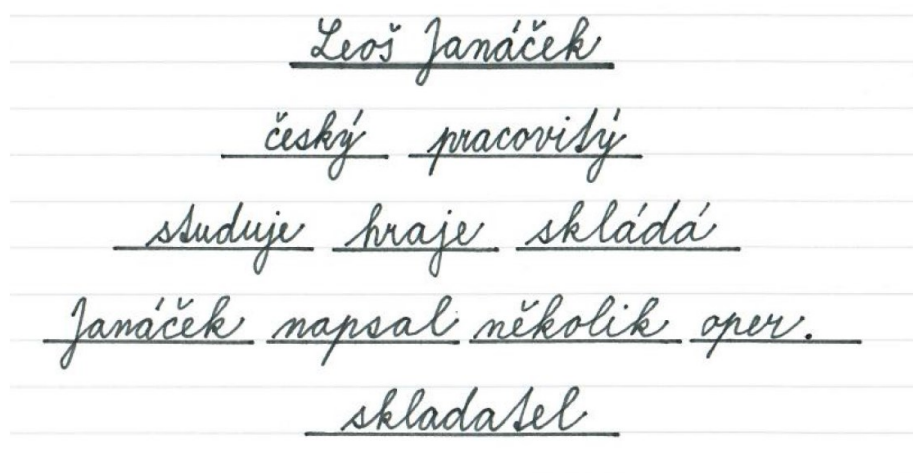 Leoš Janáček
český pracovitý
studuje hraje skládá
Janáček napsal několik oper.
skladatel